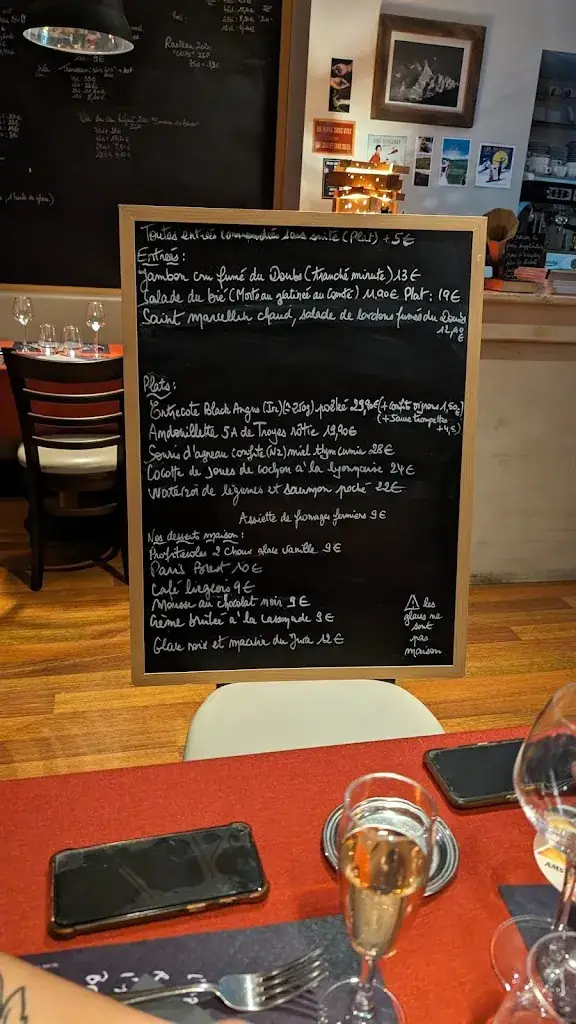 Rasteau 2020
75cl = 39€
Toutes entrée commandée sans suite (Plat) + 5€
Entrées :
Jambon cru fumé du Doubs (tranché minute) 13€
Salade du bié (Morteau gratinée au Comté) 11,90€ Plat : 19€
Saint marcellin chaud, salade de lardons fumés du Doubs
12,90
€
Plats :
Entrecote Black Angus (Irl) (≈250g) poêlée 29,90€ (+ confite oignons 1,50€)
(+ Sauce trompettes
+4€)
Andouillette 5A de Troyes rôtie 19,90€
Souris d'agneau confite (NZ) miel thym cumin 28€
Cocotte de joues de cochon à la lyonnaise 24€
Waterzoï de légumes et saumon poché 22€
Assiette de fromages fermiers 9€
Nos desserts maison :
Profiteroles 2 choux glace vanille 9€
Paris Brest 10€
Café liégeois 9€
Mousse au chocolat noir 9€
Crème brûlée à la cassonade 9€
Glace noix et macvin du Jura 12€
les
glaces ne
sont
pas
maison